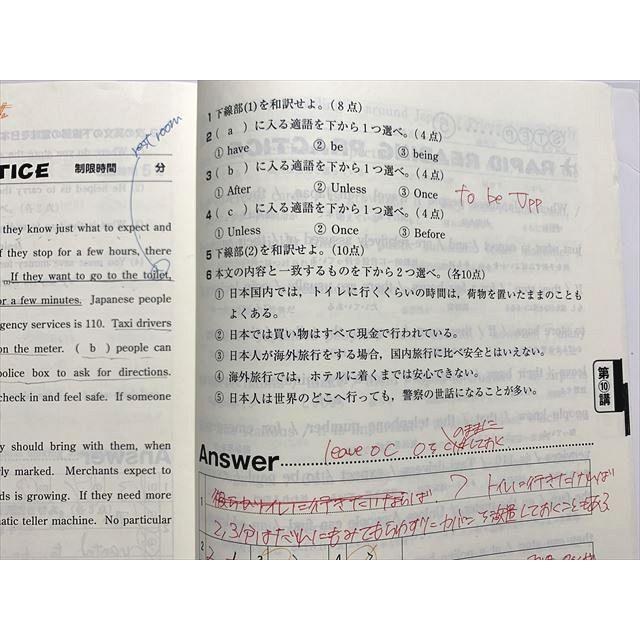 rest room
TICE 制限時間 分
they know just what to expect and
f they stop for a few hours, there
If they want to go to the toilet,
or a few minutes. Japanese people
gency services is 110. Taxi drivers
on the meter. ( b ) people can
police box to ask for directions.
check in and feel safe. If someone
y should bring with them, when
rly marked. Merchants expect to
ds is growing. If they need more
atic teller machine. No particular
1 下線部(1)を和訳せよ。(8点)
2 ( a ) に入る適語を下から1つ選べ。(4点)
① have ② be ③ being
3 ( b ) に入る適語を下から1つ選べ。(4点)
① After ② Unless ③ Once
to be Vpp
4 ( c ) に入る適語を下から1つ選べ。(4点)
① Unless ② Once ③ Before
5 下線部(2)を和訳せよ。(10点)
6 本文の内容と一致するものを下から2つ選べ。(各10点)
① 日本国内では，トイレに行くくらいの時間は，荷物を置いたままのことも
よくある。
② 日本では買い物はすべて現金で行われている。
③ 日本人が海外旅行をする場合，国内旅行に比べ安全とはいえない。
④ 海外旅行では，ホテルに着くまでは安心できない。
⑤ 日本人は世界のどこへ行っても，警察の世話になることが多い。
第⑩講
leave O C OをCのままに
しておく
Answer
1 彼らがトイレに行きたいならば トイレに行きたければ
2,3分はだれにもみてもらわずにカバンを放置しておくこともある
2 3 4